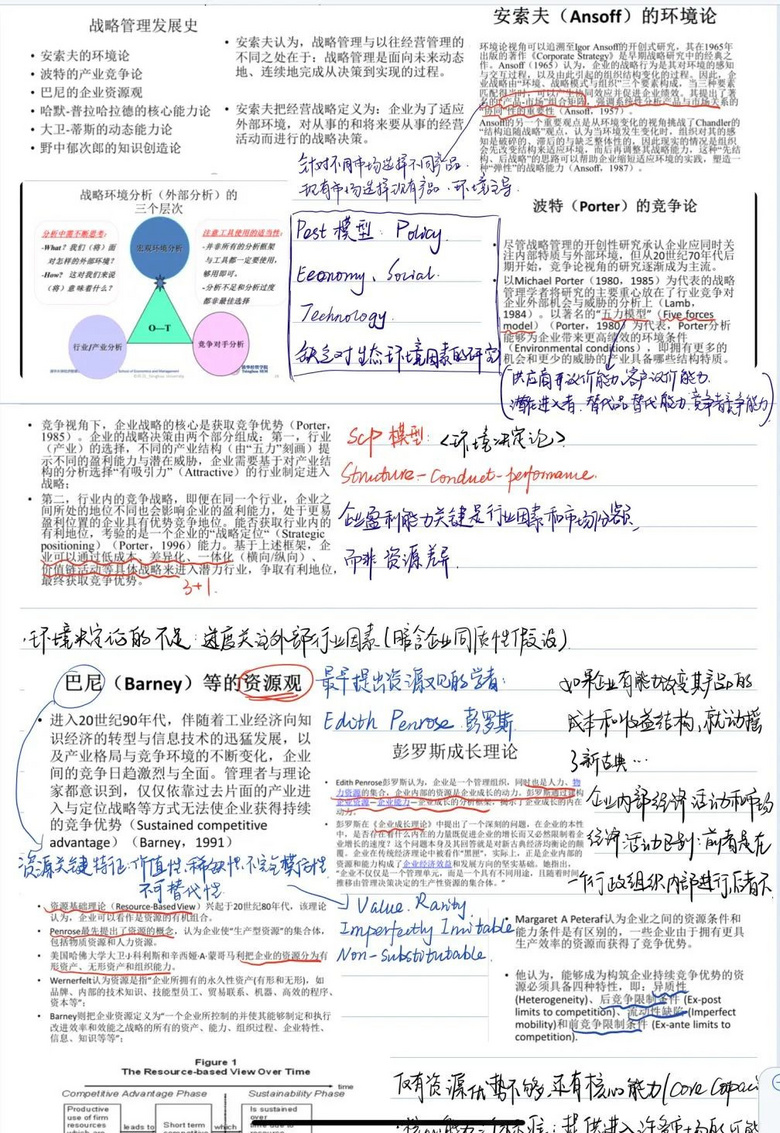 战略管理发展史
• 安索夫的环境论
• 波特的产业竞争论
• 巴尼的企业资源观
• 哈默-普拉哈拉德的核心能力论
• 大卫-蒂斯的动态能力论
• 野中郁次郎的知识创造论
• 安索夫认为，战略管理与以往经营管理的
不同之处在于：战略管理是面向未来动态
地、连续地完成从决策到实现的过程。
• 安索夫把经营战略定义为：企业为了适应
外部环境，对从事的和将来要从事的经营
活动而进行的战略决策。
安索夫（Ansoff）的环境论
环境论视角可以追溯至Igor Ansoff的开创式研究，其在1965年
出版的著作《Corporate Strategy》是早期战略研究中的经典之
作。Ansoff（1965）认为，企业的战略行为是其对环境的感知
与交互过程，以及由此引起的组织结构变化的过程。因此，企
业战略由“环境、战略模式与组织”三个要素构成，当三种要素
匹配得当时，可以产生协同效应并促进企业绩效。其提出了著
名的“产品-市场”组合矩阵，强调系统性分析产品与市场关系的
“协同”性的重要性（Ansoff，1957）。
Ansoff的另一个重要观点是从环境变化的视角挑战了Chandler的
“结构追随战略”观点，认为当环境发生变化时，组织对其的感知
是破碎的、滞后的与缺乏整体性的，因此现实的情况是组织
会先改变结构来适应环境，而后再调整其战略能力，这种“先结
构、后战略”的思路可以帮助企业缩短适应环境的实践，塑造一
种“弹性”的战略能力（Ansoff，1987）。
针对不同市场选择不同产品
现有市场选择现有产品．环境主导
战略环境分析（外部分析）的
三个层次
分析中需不断思考：
-What？我们（将）面
对怎样的外部环境？
-How？ 这对我们来说
（将）意味着什么？
宏观环境分析
注意工具使用的适当性：
-并非所有的分析框架
与工具都一定要使用，
够用即可。
-分析不足和分析过度
都非最佳选择
O—T
行业/产业分析
竞争对手分析
Pest 模型：Policy.
Economy、Social.
Technology.
缺乏对生态环境因素的研究
波特（Porter）的竞争论
• 尽管战略管理的开创性研究承认企业应同时关
注内部特质与外部环境，但从20世纪70年代后
期开始，竞争论视角的研究逐渐成为主流。
• 以Michael Porter（1980，1985）为代表的战略
管理学者将研究的主要重心放在了行业竞争对
企业外部机会与威胁的分析上（Lamb，
1984）。以著名的“五力模型”（Five forces
model）（Porter，1980）为代表，Porter分析
能够为企业带来更高绩效的环境条件
（Environmental conditions），即拥有更多的
机会和更少的威胁的产业具备哪些结构特质。
供应商再议价能力.客户议价能力.
潜在进入者．替代品替代能力.竞争者竞争能力
• 竞争视角下，企业战略的核心是获取竞争优势（Porter，
1985）。企业的战略决策由两个部分组成：第一，行业
（产业）的选择，不同的产业结构（由“五力”刻画）提
示不同的盈利能力与潜在威胁，企业需要基于对产业结
构的分析选择“有吸引力”（Attractive）的行业制定进入
战略；
• 第二，行业内的竞争战略，即便在同一个行业，企业之
间所处的地位不同也会影响企业的盈利能力，处于更易
盈利位置的企业具有优势竞争地位。能否获取行业内的
有利地位，考验的是一个企业的“战略定位”（Strategic
positioning）（Porter，1996）能力。基于上述框架，企
业可以通过低成本、差异化、一体化（横向/纵向）、
价值链活动等具体战略来进入潜力行业，争取有利地位，
最终获取竞争优势。
3+1
Scp 模型：〈环境决定论〉
Structure-Conduct-performance.
企业盈利能力关键是行业因素和市场份额
而非资源差异．
·环境决定论的不足：过度关注外部行业因素(暗含企业同质性假设)
巴尼（Barney）等的资源观
• 进入20世纪90年代，伴随着工业经济向知
识经济的转型与信息技术的迅猛发展，以
及产业格局与竞争环境的不断变化，企业
间的竞争日趋激烈与全面。管理者与理论
家都意识到，仅仅依靠过去片面的产业进
入与定位战略等方式无法使企业获得持续
的竞争优势（Sustained competitive
advantage）（Barney，1991）
资源关键特征：价值性.稀缺性.不完全模仿性.
不可替代性
最早提出资源观的学者：
Edith Penrose 彭罗斯
彭罗斯成长理论
• Edith Penrose彭罗斯认为，企业是一个管理组织，同时也是人力、物
力资源的集合，企业内部的资源是企业成长的动力。彭罗斯通过建构
企业资源—企业能力—企业成长的分析框架，揭示了企业成长的内在
动力.
• 彭罗斯在《企业成长理论》中提出了一个深刻的问题，在企业的本性
中，是否存在着什么内在的力量既促进企业的增长而又必然限制着企
业增长的速度？这个问题本身及其回答就是对新古典经济均衡论的颠
覆。企业在传统经济理论中被看作“黑匣”，实际上，正是企业内部的
资源和能力构成了企业经济效益和发展方向的坚实基础。她指出，
“企业不仅仅是一个管理单元，而是一个具有不同用途、且随着时间
推移由管理决策决定的生产性资源的集合体。”
如果企业有能力改变其产品的
成本和收益结构，就动摇
了新古典…
企业内部经济活动和市场
经济活动区别：前者是在
一个行政组织内部进行，后者不
• 资源基础理论（Resource-Based View）兴起于20世纪80年代，该理论
认为，企业可以看作是资源的有机组合。
• Penrose最先提出了资源的概念，认为企业使“生产型资源”的集合体，
包括物质资源和人力资源。
• 美国哈佛大学大卫·J·科利斯和辛西娅·A·蒙哥马利把企业的资源分为有
形资产、无形资产和组织能力。
• Wernerfelt认为资源是指“企业所拥有的永久性资产(有形和无形)，如
品牌、内部的技术知识、技能型员工、贸易联系、机器、高效的程序、
资本等”；
• Barney则把企业资源定义为“一个企业所控制的并使其能够制定和执行
改进效率和效能之战略的所有的资产、能力、组织过程、企业特性、
信息、知识等等”；
Value. Rarity
Imperfectly Imitable
Non-Substitutable.
• Margaret A Peteraf认为企业之间的资源条件和
能力条件是有区别的，一些企业由于拥有更具
生产效率的资源而获得了竞争优势。
• 他认为，能够成为构筑企业持续竞争优势的资
源必须具备四种特性，即：异质性
(Heterogeneity)、后竞争限制条件 (Ex-post
limits to competition)、流动性缺陷 (Imperfect
mobility)和前竞争限制条件 (Ex-ante limits to
competition).
Figure 1
The Resource-based View Over Time
time
Competitive Advantage Phase
Sustainability Phase
Productive
use of firm
resources
which are
leads to
Short term
competitive
which
Is sustained
over
仅有资源优势不够，还有核心能力(Core Capaci